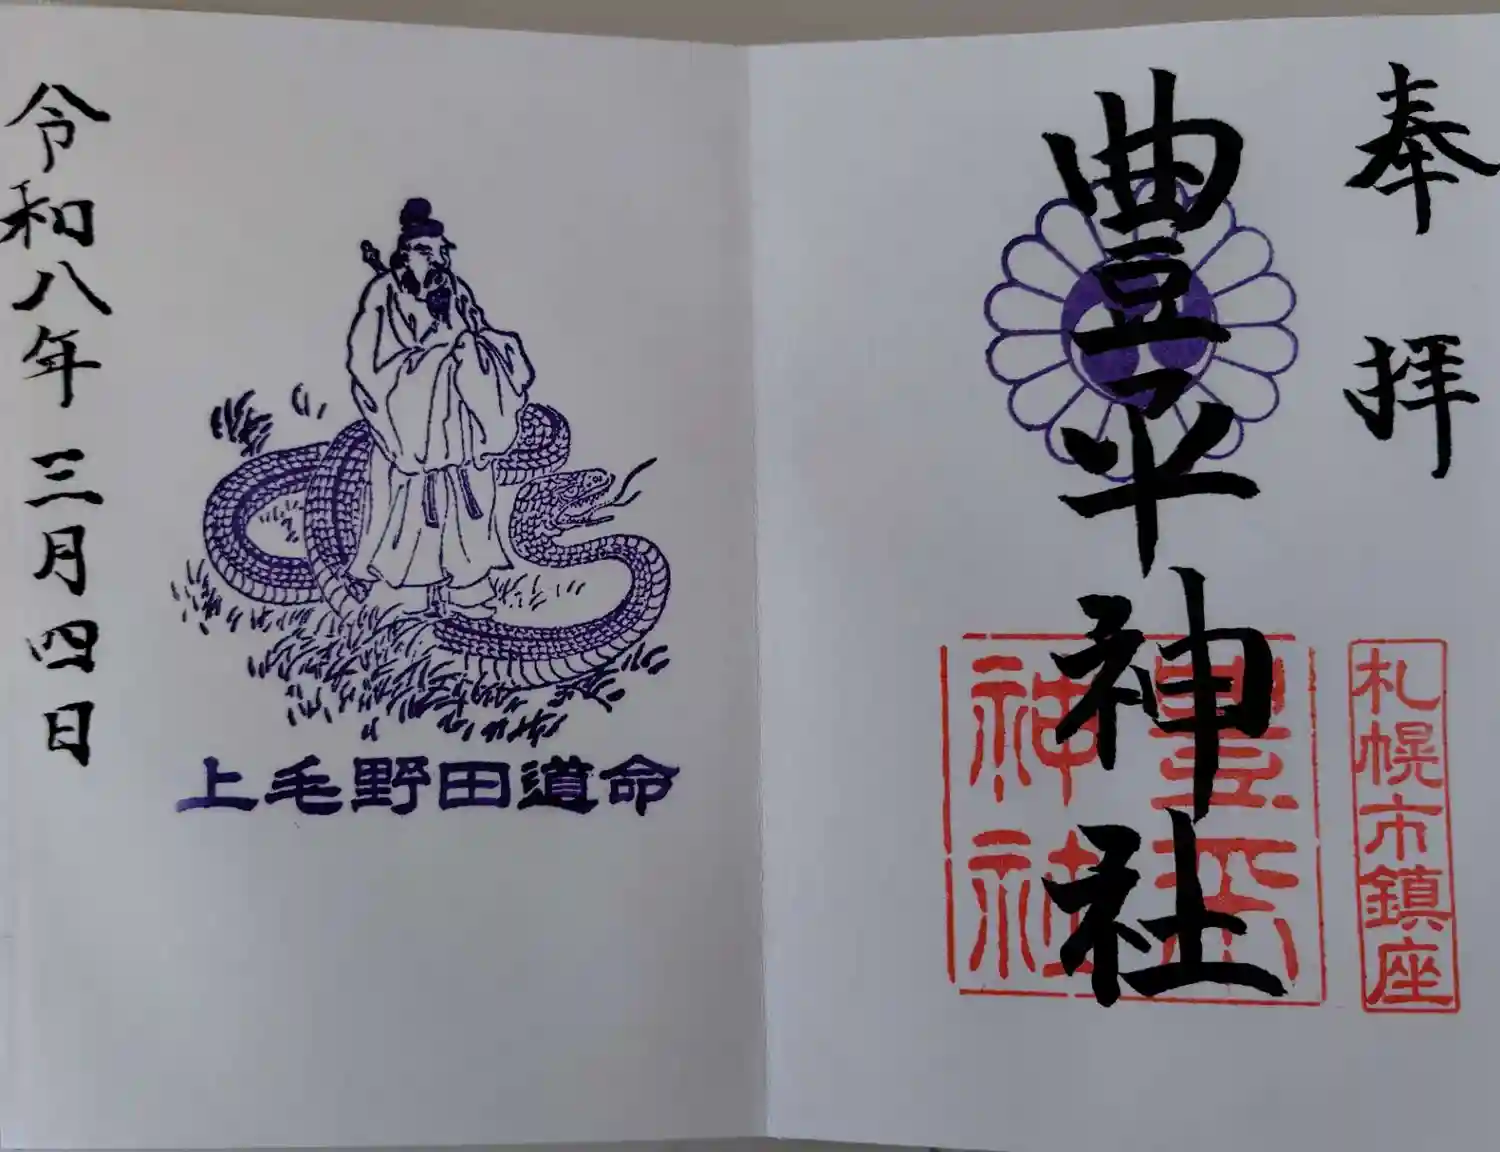 奉拝
豊平神社
札幌市鎮座
豊平
神社
上毛野田道命
令和八年三月四日